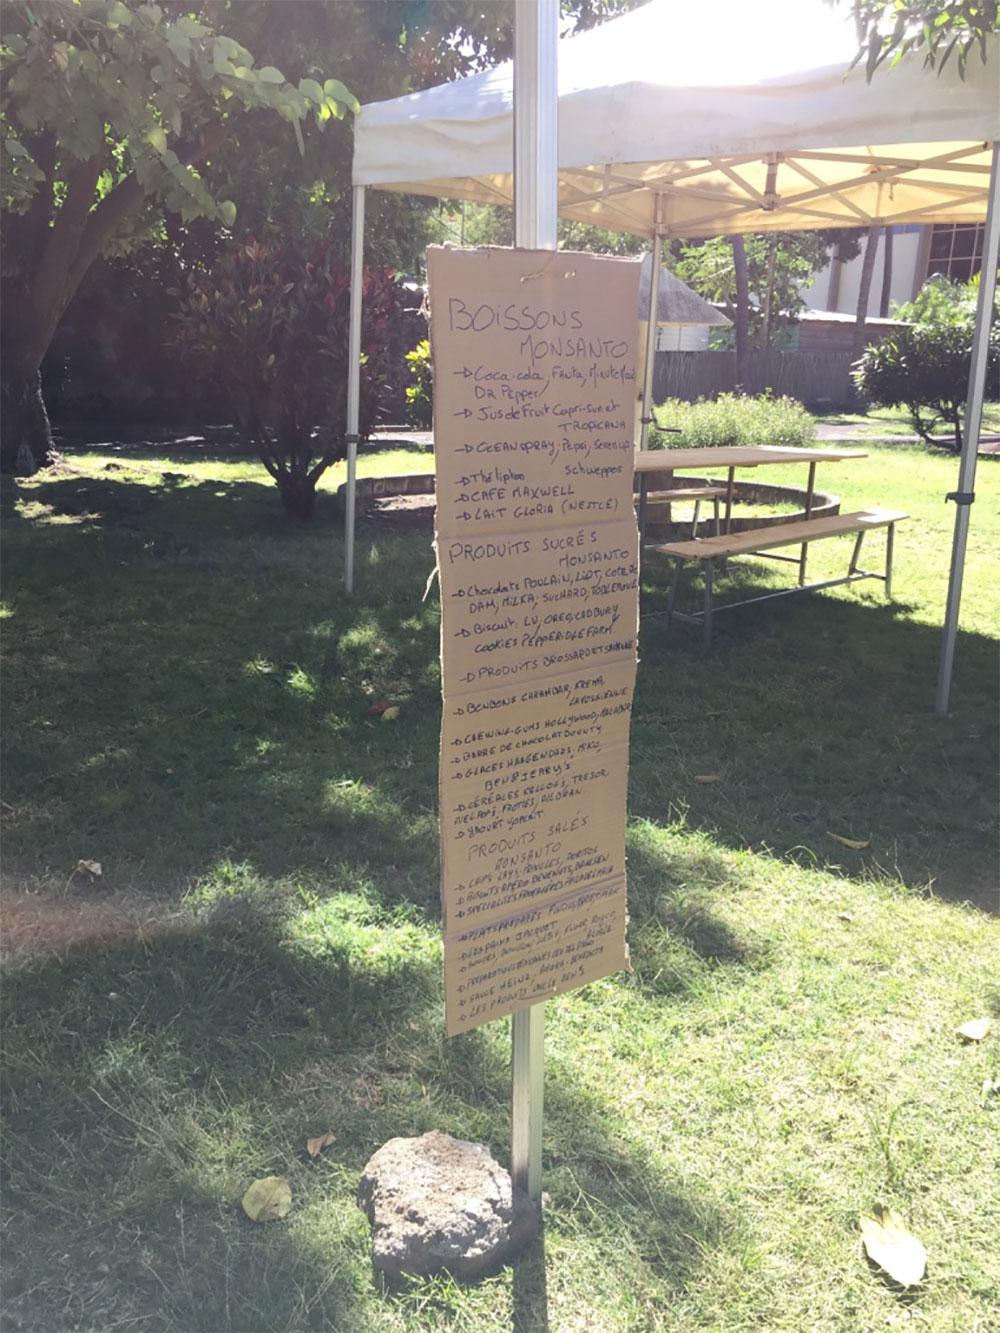 BOISSONS
MONSANTO
→ Coca-cola, Fanta, Minute Maid
DR Pepper
→ Jus de Fruit Capri-sun et
TROPICANA
→ OCEAN SPRAY, Pepsi, Seven up
Schweppes
→ Thé lipton
→ CAFE MAXWELL
→ LAIT GLORIA (NESTLÉ)
PRODUITS SUCRÉS
MONSANTO
→ Chocolats POULAIN, LIDT, COTE DE
DAM, MILKA, SUCHARD, TOBLERONE
→ Biscuit. LU, OREO, CADBURY
COOKIES PEPPERIDGE FARM
→ PRODUITS BROSSARD ET
→ BONBONS CARAMBAR, KREMA,
LA VOSGIENNE
→ CHEWING-GUMS HOLLYWOOD, MALABAR
→ BARRE DE CHOCOLAT BOUNTY
→ GLACES HAAGENDAZS, MIKO,
BEN & JERRY'S
→ CÉRÉALES KELLOG'S, TRESOR,
→ YAOURT YOPLAIT
PRODUITS SALÉS
MONSANTO
→ CHIPS LAYS, PRINGLES, DORITOS
→ BISCUITS APÉRO BENENUTS,
→ SPÉCIALISÉS FROMAGÈRES PHILADELPHIA
→ PLATS PRÉPARÉS FINDUS,
→ LES PAINS JACQUET
→ SAUCE HEINZ, AMORA, BENEDICTA
→ LES PRODUITS UNCLE BEN'S